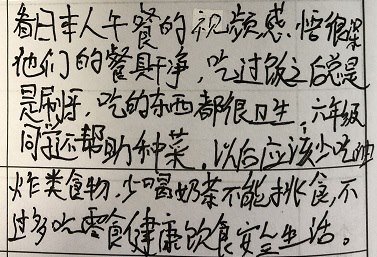 看日本人午餐的视频感悟很深
他们的餐具干净,吃过饭之后总是
是刷牙,吃的东西都很卫生,六年级
同学还帮助种菜,以后应该少吃油
炸类食物,少喝奶茶不能挑食,不
过多吃零食健康饮食安全生活。